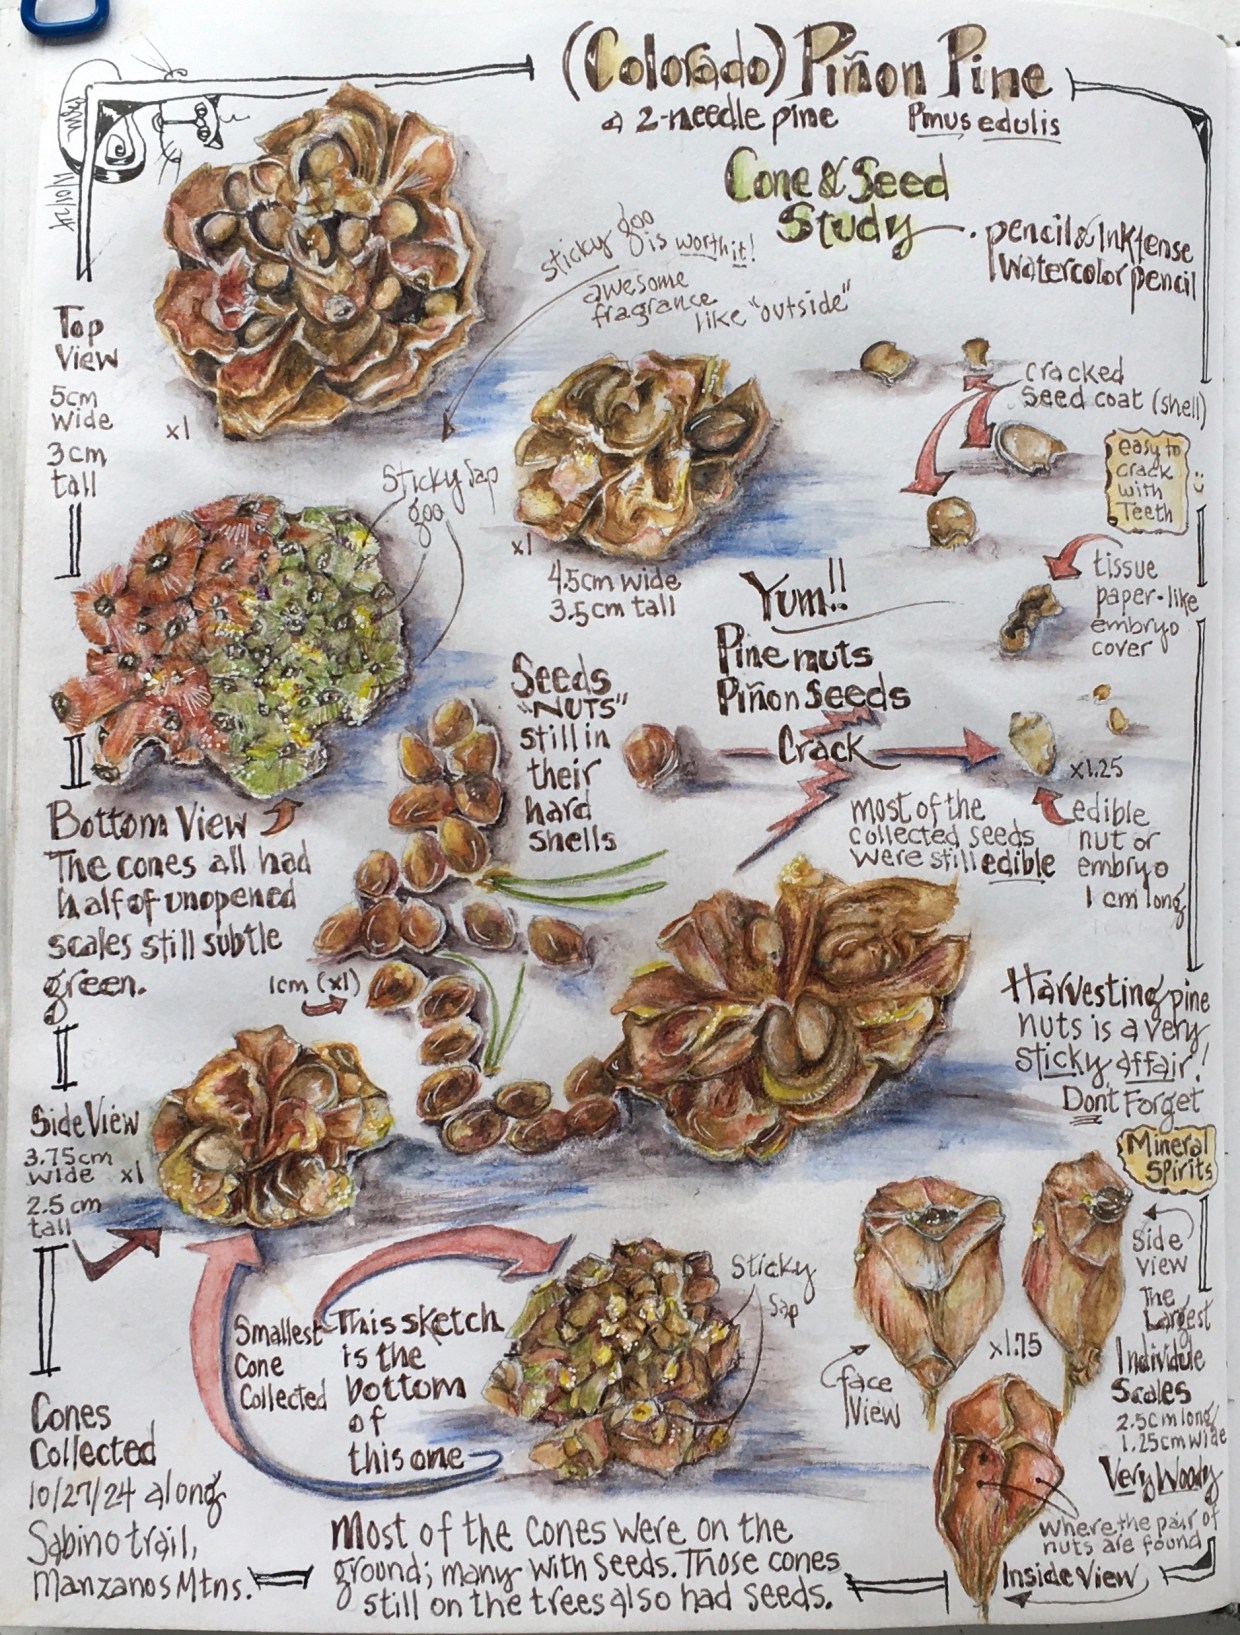 (Colorado) Piñon Pine
a 2-needle pine
Pinus edulis
Cone & Seed
Study
pencil & Inktense
Watercolor pencil
sticky goo
is worth it!
awesome
fragrance
like "outside"
Top
View
5cm
wide
3cm
tall
x1
Sticky Sap
goo
x1
4.5cm wide
3.5cm tall
cracked
seed coat (shell)
easy to
crack
with
Teeth
:)
tissue
paper-like
embryo
cover
Yum!!
Pine nuts
Piñon Seeds
Crack
x1.25
Seeds
"NUTS"
still in
their
hard
shells
most of the
collected seeds
were still edible
edible
nut or
embryo
1 cm long
Bottom View
The cones all had
half of unopened
scales still subtle
green.
1cm (x1)
Harvesting pine
nuts is a very
sticky affair!
Don't Forget
Mineral
Spirits
Side View
3.75cm
wide x1
2.5 cm
tall
Smallest
Cone
Collected
This sketch
is the
bottom
of
this one
Sticky
Sap
Side
View
The
Largest
Individule
Scales
2.5cm long
1.25cm wide
Very Woody
x1.75
face
View
where the pair of
nuts are found
Inside View
Cones
Collected
10/27/24 along
Sabino trail,
Manzanos Mtns.
Most of the cones were on the
ground; many with seeds. Those cones
still on the trees also had seeds.